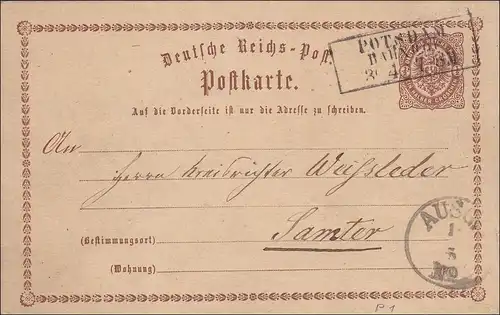 POTSDAM
BAHNH.
4
Deutsche Reichs-Post.
Postkarte.
Auf die Vorderseite ist nur die Adresse zu schreiben.
An
Herrn Kreisrichter Weissleder
Samter
(Bestimmungsort)
(Wohnung)
AUSG
1
5
No
P1